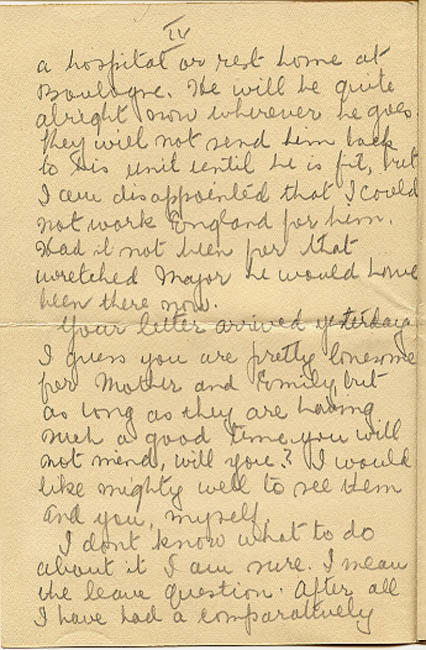 IV
a hospital or rest home at
Boulogne. He will be quite
alright now wherever he goes.
They will not send him back
to his unit until he is fit, but
I am disappointed that I could
not work England for him.
Had it not been for that
wretched Major he would have
been there now.
Your letter arrived yesterday
I guess you are pretty lonesome
for Mother and Emily, but
as long as they are having
such a good time you will
not mind, will you? I would
like mighty well to see them
and you, myself.
I dont know what to do
about it I am sure. I mean
the leave question. After all
I have had a comparatively